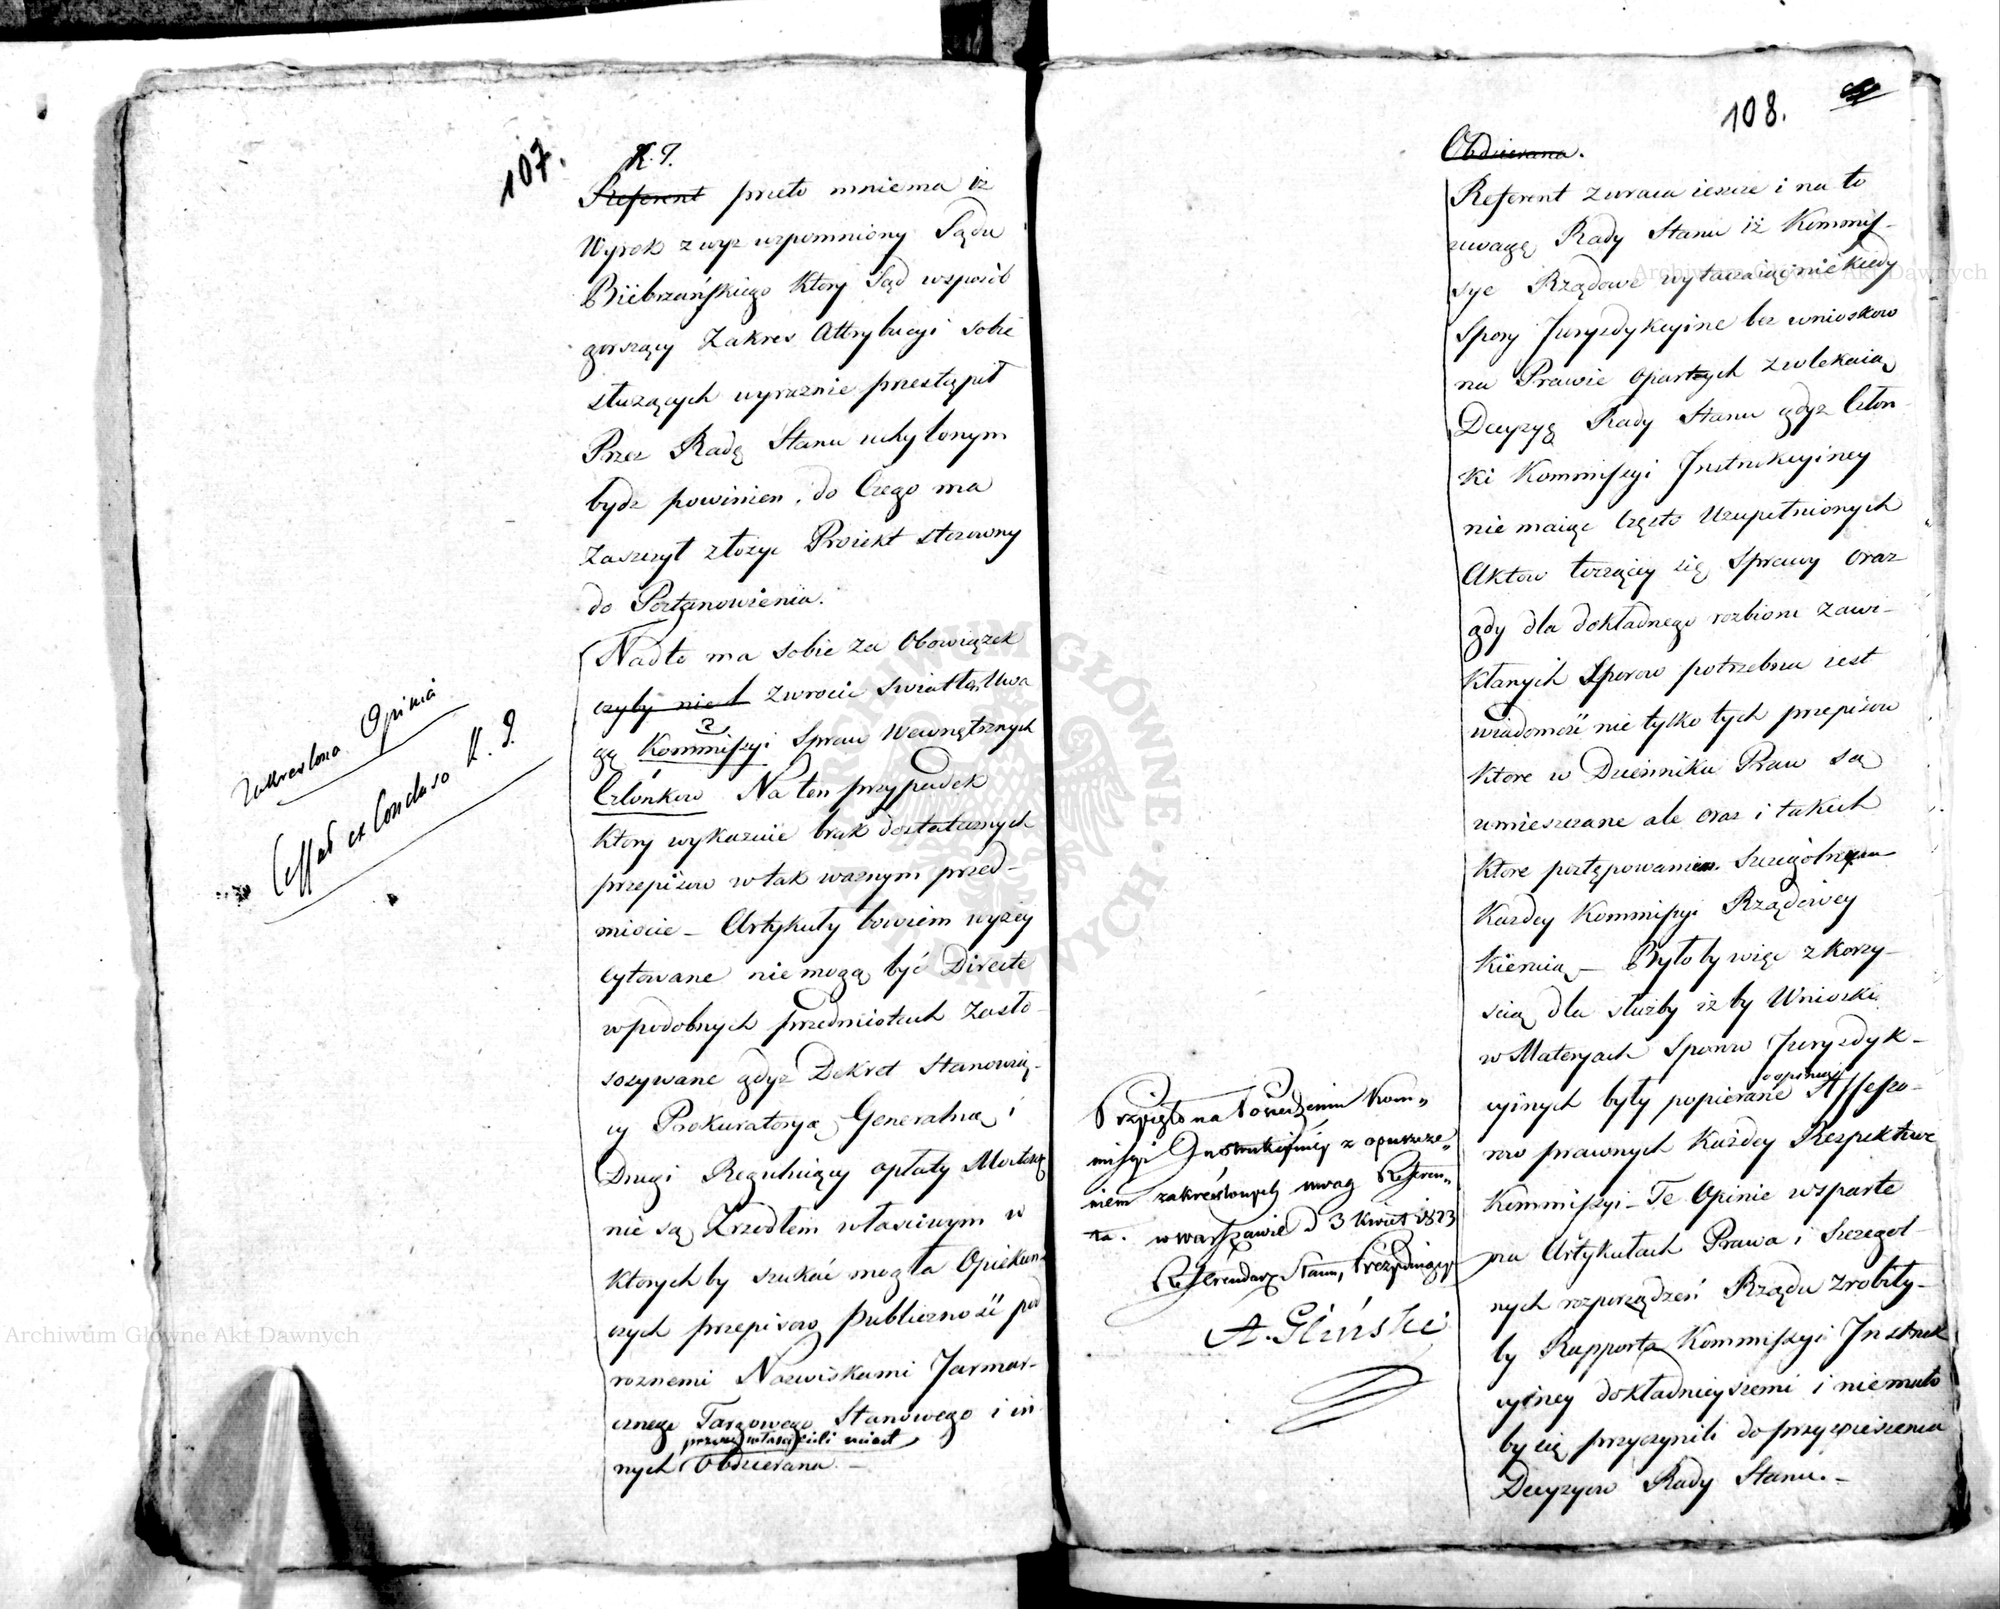 107.
K. I.
Referent przeto mniema iż
Wyrok zwyż wspomniony Sądu
Biebrzańskiego Który Sąd wsposób
gorszący Zakres Attrybucyi sobie
służących wyraznie przestąpił
Przez Radę Stanu uchylonym
bydz powinien. do Czego ma
Zaszczyt złożyc Proiekt stosowny
do Postanowienia.
Nadto ma sobie za Obowiązek
zwrocic swiatłą Uwa
gę Kommissyi Spraw Wewnętrznych
Członkow Na ten przypadek
Ktory wykazuie brak dostatecznych
przepisow w tak waznym przed-
miocie – Artykuły bowiem wyżey
Cytowane niemogą być Directe
w podobnych przedmiotach Zasto-
sozywane gdyz Dekret Stanowią-
cy Prokuratoryą Generalną i
Drugi Reguluiący opłaty
nie są Zrzodłem właściwym w
Ktorychby szukać mogła Opiekun
czych przepisow Publiczność pod
roznemi Nazwiskami Jarmar-
cznego Targowego Stanowego i in
przez właścicieli miast
nych Obdzierana. –
Zakreslona Opinia
Cessat ex Concluso K. I.
108.
Obdzierana.
Referent zwraca ieszcze i na to
uwagę Rady Stanu iż Kommis-
sye Rządowe wytaczaiąc niekiedy
Spory Juryzdykcyine bez wnioskow
na Prawie opartych zwlekaią
Decyzyą Rady Stanu gdyz Człon-
ki Kommissyi Instrukcyiney
nie maiąc Często Uzupełnionych
Aktow toczącey się Sprawy oraz
gdy dla dokładnego rozbioru zawi-
kłanych Sporow potrzebna iest
wiadomość nie tylko tych przepisow
Ktore w Dzienniku Praw są
umieszczane ale oraz i takich
Ktore postępowaniem Szczególnym
Kazdey Kommissyi Rządowey
Kieruią – Byłoby więc z korzy-
ścią dla służby iż by Wnioski
w Materyach Sporow Juryzdyk-
opinią
cyinych były popierane Assesso-
row prawnych Każdey Respective
Kommissyi – Te Opinie wsparte
na Artykułach Prawa i Szczegol-
nych rozporządzeń Rządu zrobiły-
by Rapporta Kommissyi Instruk
cyiney dokładnieyszemi i niemało
by się przyczynili do przyspieszenia
Decyzyow Rady Stanu. –
Przyięto na Posiedzeniu Kom-
missyi Instrukcyiney z opuszcze-
niem zakreślonych uwag Referen-
ta. w Warszawie d 3 Kwiet 1823
Referendarz Stanu, Prezyduiący
A. Gliński
Archiwum Główne Akt Dawnych
Archiwum Główne Akt Dawnych
ARCHIWUM GŁÓWNE AKT DAWNYCH